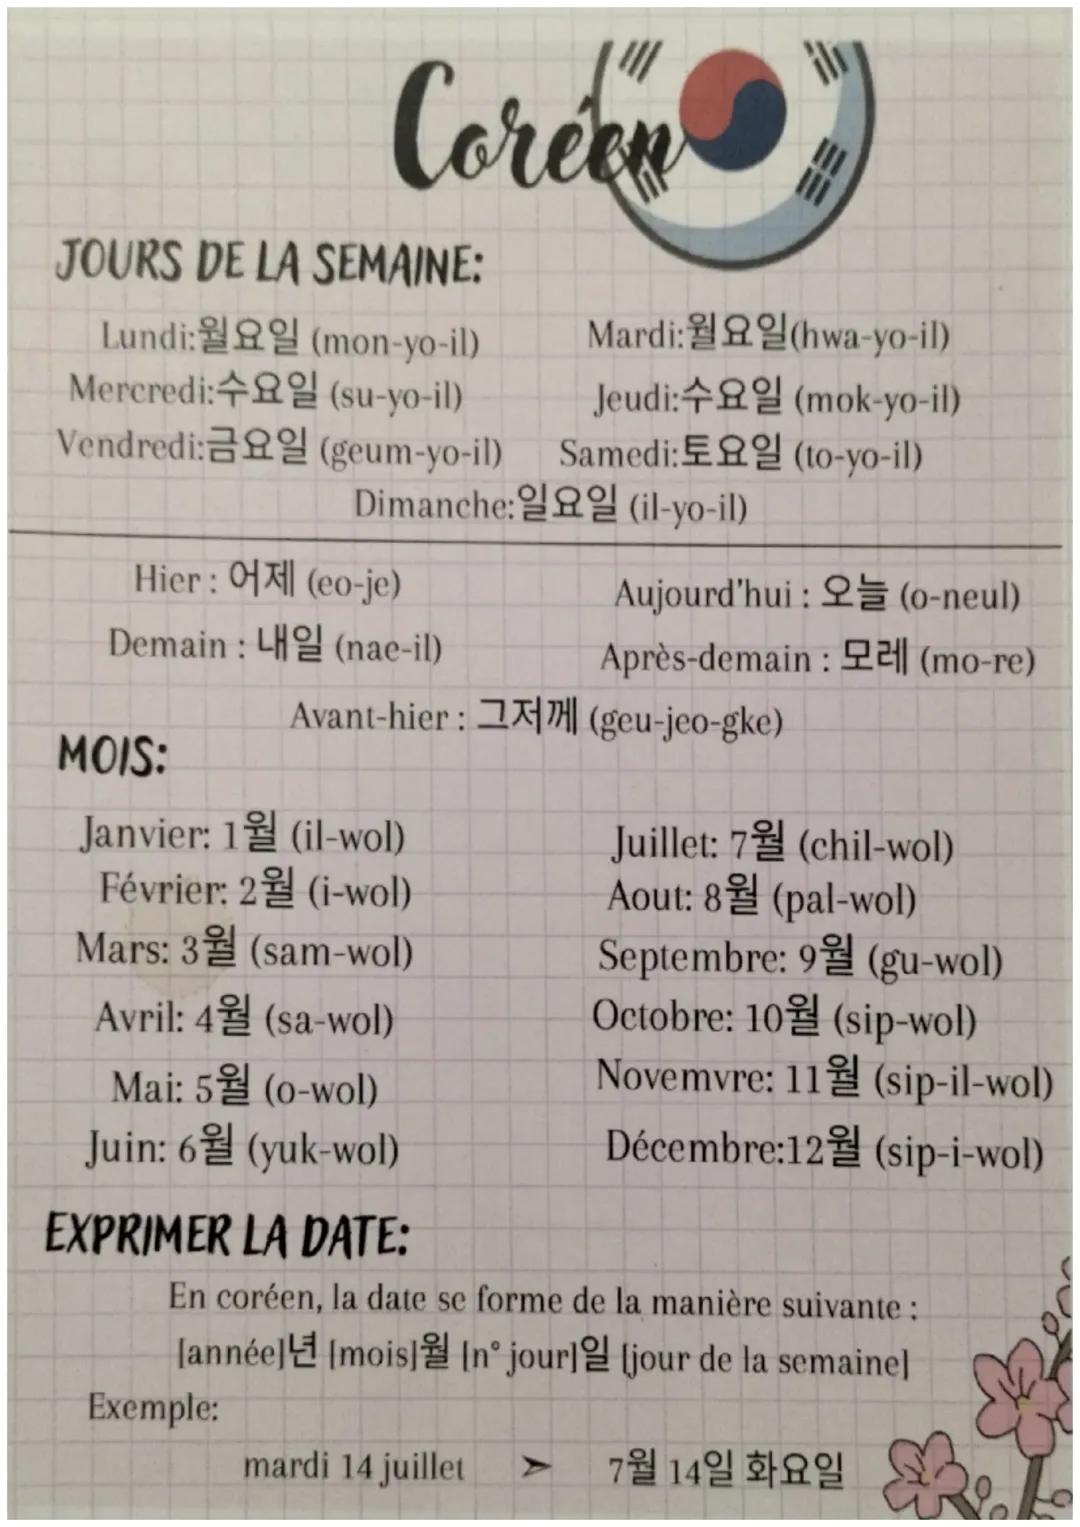 Coréen
JOURS DE LA SEMAINE:
Lundi:월요일 (mon-yo-il) Mardi:월요일(hwa-yo-il)
Mercredi:수요일 (su-yo-il) Jeudi:수요일 (mok-yo-il)
Vendredi:금요일 (geum-yo-il) Samedi:토요일 (to-yo-il)
Dimanche:일요일 (il-yo-il)
Hier : 어제 (eo-je) Aujourd'hui : 오늘 (o-neul)
Demain : 내일 (nae-il) Après-demain : 모레 (mo-re)
Avant-hier : 그저께 (geu-jeo-gke)
MOIS:
Janvier: 1월 (il-wol) Juillet: 7월 (chil-wol)
Février: 2월 (i-wol) Aout: 8월 (pal-wol)
Mars: 3월 (sam-wol) Septembre: 9월 (gu-wol)
Avril: 4월 (sa-wol) Octobre: 10월 (sip-wol)
Mai: 5월 (o-wol) Novemvre: 11월 (sip-il-wol)
Juin: 6월 (yuk-wol) Décembre:12월 (sip-i-wol)
EXPRIMER LA DATE:
En coréen, la date se forme de la manière suivante :
[année]년 [mois]월 [n° jour]일 [jour de la semaine]
Exemple:
mardi 14 juillet ➤ 7월 14일 화요일